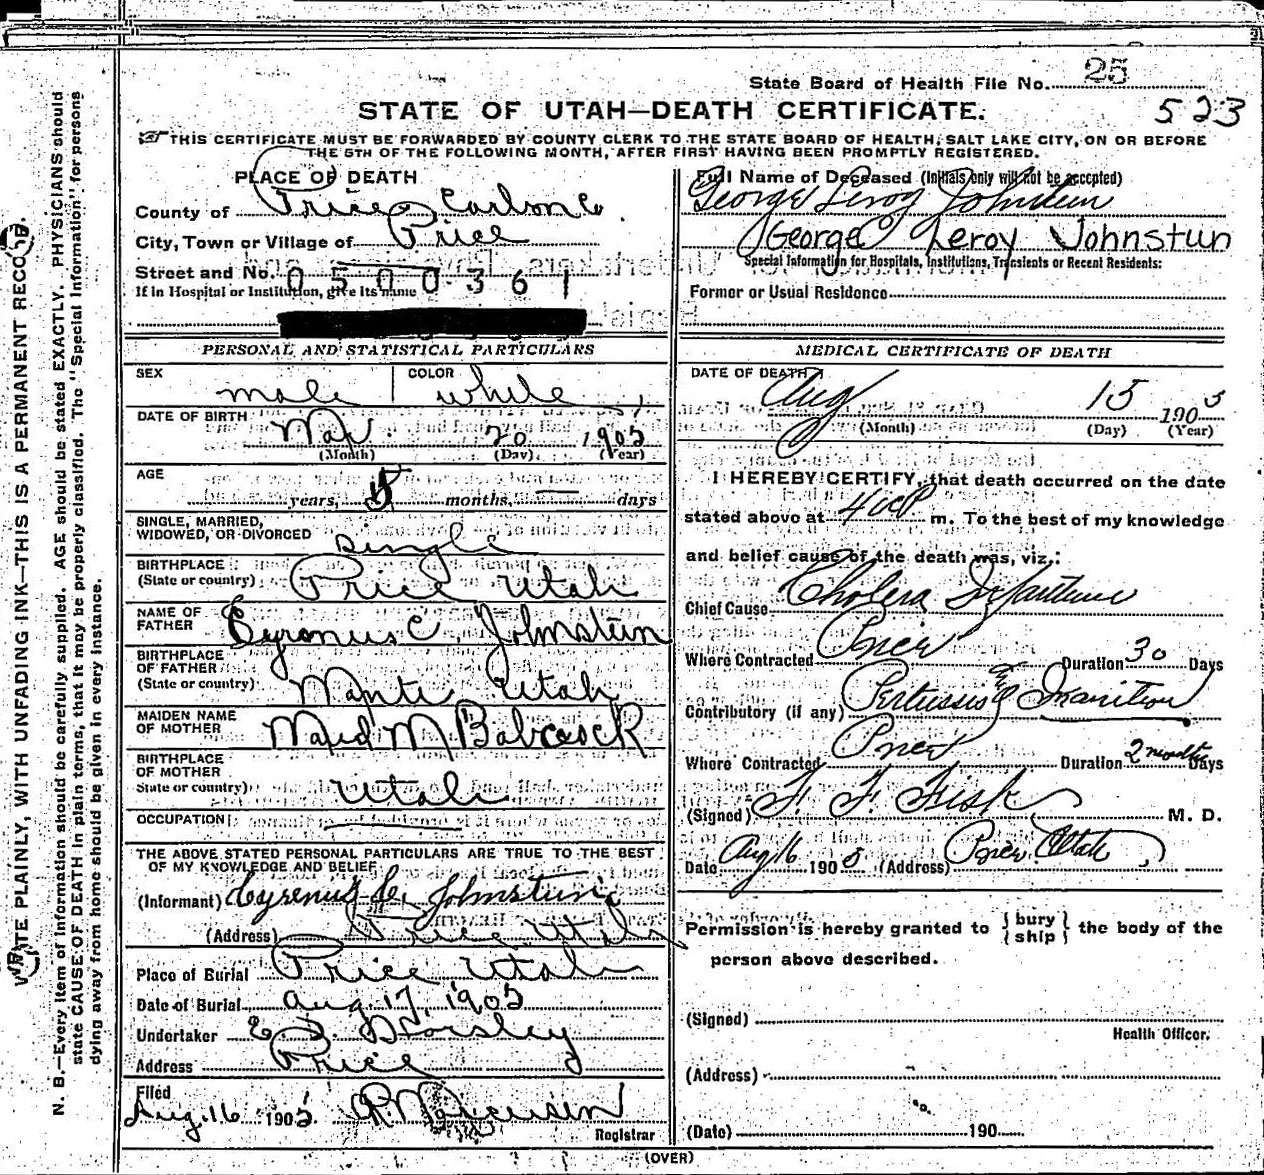 State Board of Health File No. 25
STATE OF UTAH—DEATH CERTIFICATE.
523
THIS CERTIFICATE MUST BE FORWARDED BY COUNTY CLERK TO THE STATE BOARD OF HEALTH, SALT LAKE CITY, ON OR BEFORE
THE 5TH OF THE FOLLOWING MONTH, AFTER FIRST HAVING BEEN PROMPTLY REGISTERED.
PLACE OF DEATH
County of Price Carbon Co.
City, Town or Village of Price
Street and No. 0500361
If in Hospital or Institution, give its name
Full Name of Deceased (Initials only will not be accepted)
George Leroy Johnstun
George Leroy Johnstun
Special Information for Hospitals, Institutions, Transients or Recent Residents:
Former or Usual Residence
PERSONAL AND STATISTICAL PARTICULARS
SEX male COLOR white
DATE OF BIRTH Mar. 20 1905
(Month) (Day) (Year)
AGE
years, 5 months, — days
SINGLE, MARRIED,
WIDOWED, OR DIVORCED single
BIRTHPLACE
(State or country) Price Utah
NAME OF
FATHER Cyrenus C Johnstun
BIRTHPLACE
OF FATHER
(State or country) Manti Utah
MAIDEN NAME
OF MOTHER M Babcock
BIRTHPLACE
OF MOTHER
State or country) Utah
OCCUPATION
THE ABOVE STATED PERSONAL PARTICULARS ARE TRUE TO THE BEST
OF MY KNOWLEDGE AND BELIEF
(Informant) Cyrenus C. Johnstun
(Address) Price Utah
Place of Burial Price Utah
Date of Burial Aug. 17, 1905
Undertaker
Address Price
Filed
Aug. 16 1905
Registrar
MEDICAL CERTIFICATE OF DEATH
DATE OF DEATH
Aug 15 1905
(Month) (Day) (Year)
I HEREBY CERTIFY, that death occurred on the date
stated above at 400 P m. To the best of my knowledge
and belief cause of the death was, viz,:
Chief Cause Cholera Infantum
Where Contracted Price Duration 30 Days
Contributory (if any) Pertussis & Inanition
Where Contracted Price Duration 2 months Days
(Signed) F F Fisk M. D.
Date Aug 16 1905 (Address) Price Utah
Permission is hereby granted to { bury
ship } the body of the
person above described.
(Signed)
Health Officer.
(Address)
(Date) 190
(OVER)
WRITE PLAINLY, WITH UNFADING INK—THIS IS A PERMANENT RECORD.
N. B.—Every item of information should be carefully supplied. AGE should be stated EXACTLY. PHYSICIANS should
state CAUSE OF DEATH in plain terms, that it may be properly classified. The "Special Information" for persons
dying away from home should be given in every instance.